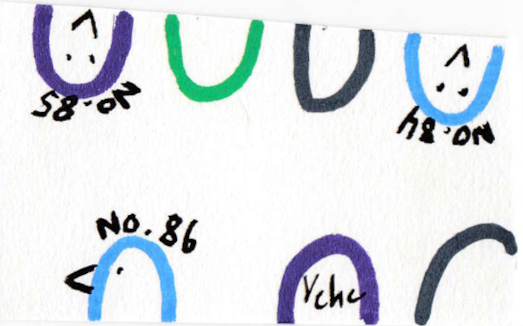 No. 85
No. 84
No. 86
Ychc